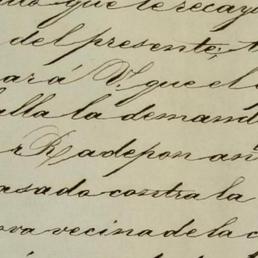 que le recayo
del presente;
ará á V. que el
alla la demand
r Radepon añ
asado contra la
ova vecina de la c